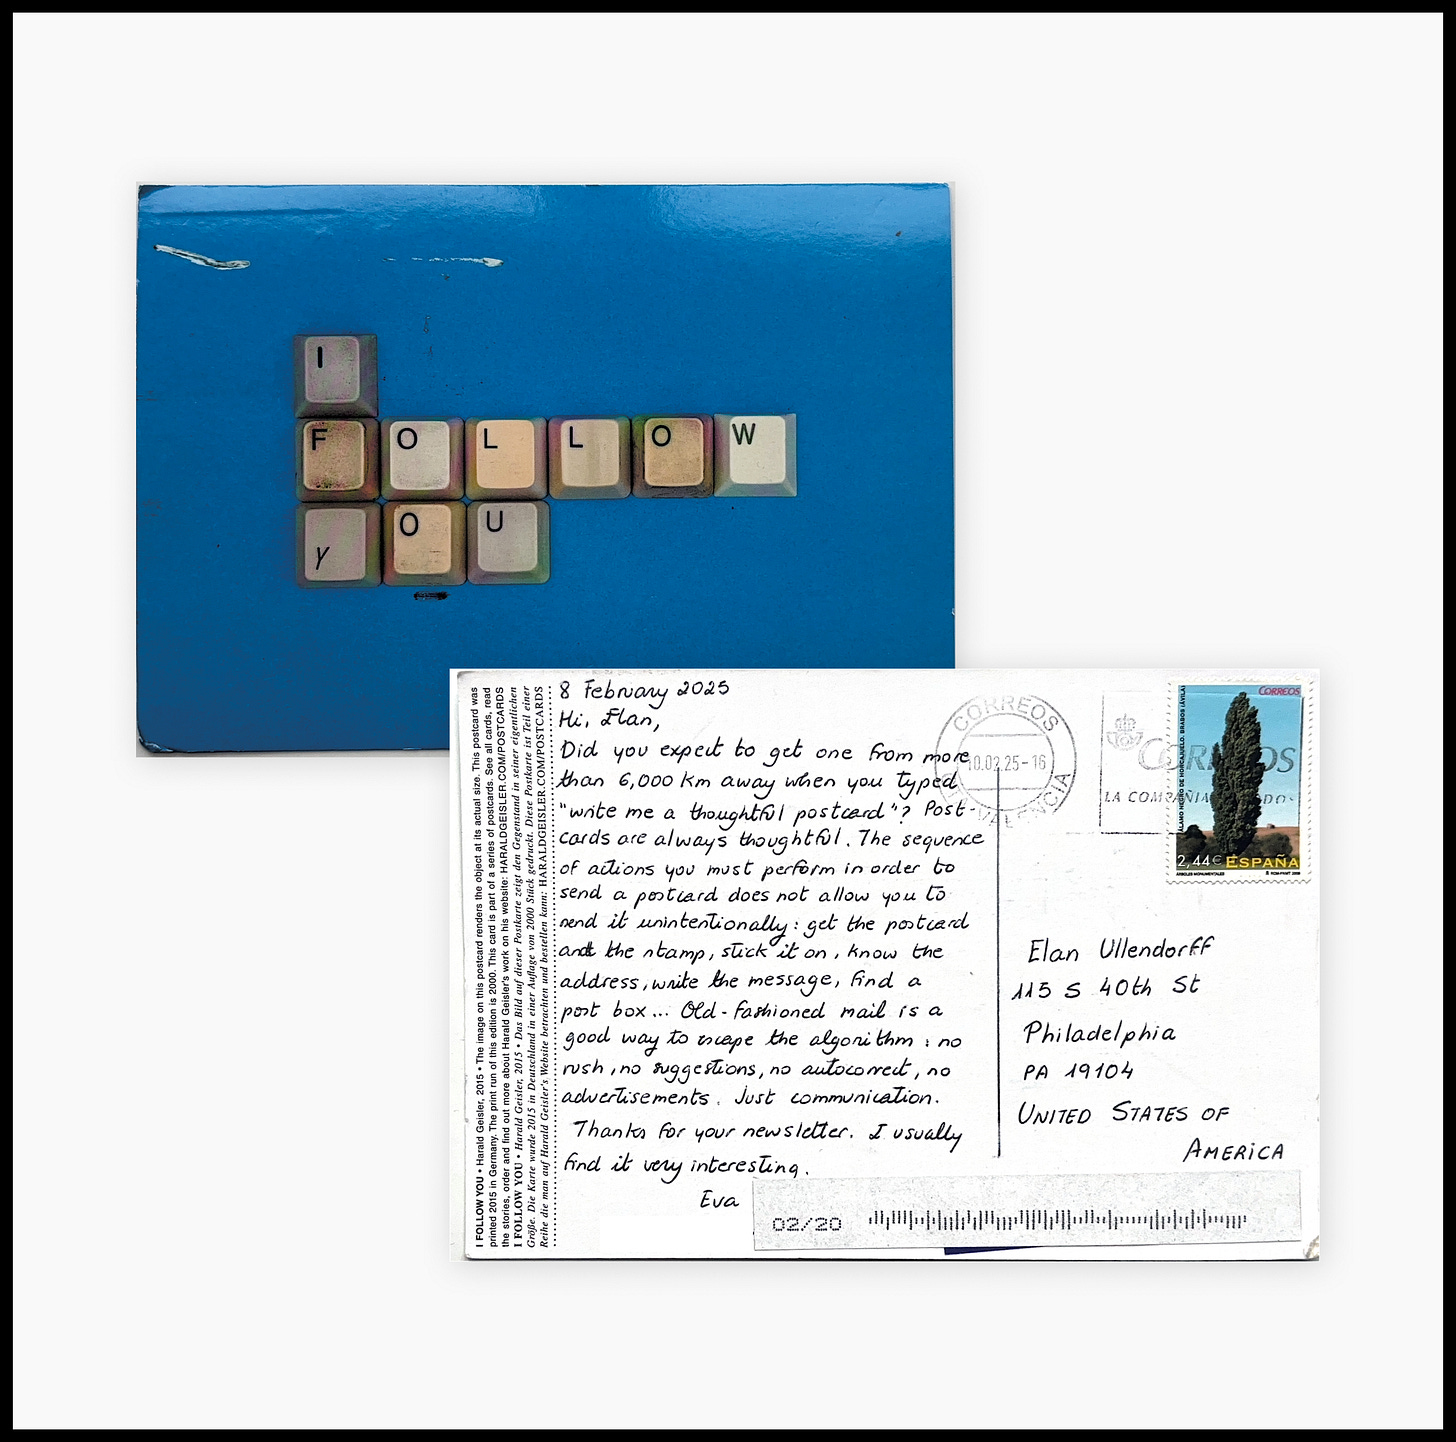 I
FOLLOW
yOU
I FOLLOW YOU • Harald Geisler, 2015 • The image on this postcard renders the object at its actual size. This postcard was
printed 2015 in Germany. The print run of this edition is 2000. This card is part of a series of postcards. See all cards, read
the stories, order and find out more about Harald Geisler's work on his website: HARALDGEISLER.COM/POSTCARDS
I FOLLOW YOU • Harald Geisler, 2015 • Das Bild auf dieser Postkarte zeigt den Gegenstand in seiner eigentlichen
Größe. Die Karte wurde 2015 in Deutschland in einer Auflage von 2000 Stück gedruckt. Diese Postkarte ist Teil einer
Reihe die man auf Harald Geisler's Website betrachten und bestellen kann: HARALDGEISLER.COM/POSTCARDS
8 February 2025
Hi, Elan,
Did you expect to get one from more
than 6,000 km away when you typed
"write me a thoughtful postcard"? Post-
cards are always thoughtful. The sequence
of actions you must perform in order to
send a postcard does not allow you to
send it unintentionally: get the postcard
and the stamp, stick it on, know the
address, write the message, find a
post box... Old-fashioned mail is a
good way to escape the algorithm: no
rush, no suggestions, no autocorrect, no
advertisements. Just communication.
Thanks for your newsletter. I usually
find it very interesting.
Eva
CORREOS
10.02.25-16
VALENCIA
CORREOS
LA COMPAÑIA
CORREOS
ALAMO NEGRO DE HORCAJUELO. BRABOS (ÁVILA)
2,44€ ESPAÑA
ÁRBOLES MONUMENTALES
Elan Ullendorff
115 S 40th St
Philadelphia
PA 19104
UNITED STATES OF
AMERICA
02/20